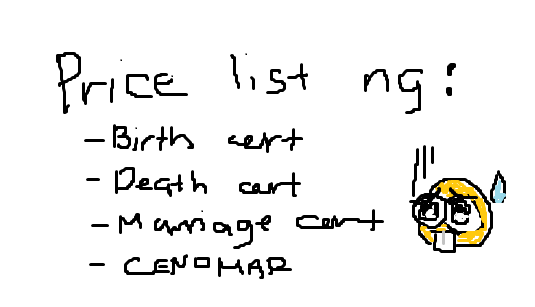 Price list ng:
- Birth cert
- Death cert
- Marriage cert
- CENOMAR